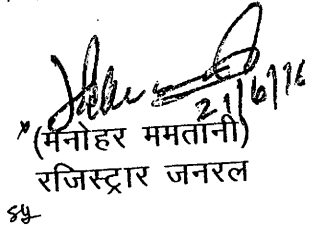 21/6/16
(मनोहर ममतानी)
रजिस्ट्रार जनरल